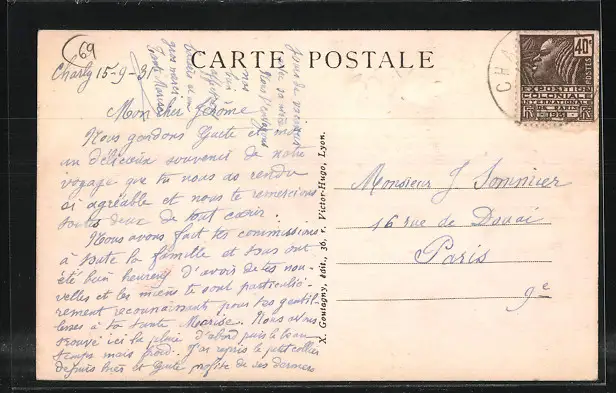 69
CARTE POSTALE
Charly 15-9-31
Mon cher Jérôme
Nous gardons Guete et moi
un délicieux souvenir de notre
voyage que tu nous as rendu
si agréable et nous te remercions
toutes deux de tout cœur.
Nous avons fait tes commissions
à toute la famille et tous ont
été bien heureux d'avoir de tes nou-
velles et les miens te sont particuliè-
rement reconnaissants pour tes gentil-
lesses à ta tante Marise. Nous avons
trouvé ici la pluie d'abord puis le beau
temps mais froid. J'ai repris le petit collier
depuis hier et Guete profite de ses derniers
X. Goutagny, édit., 36, r. Victor-Hugo, Lyon.
Monsieur J Sommier
16 rue de Douai
Paris
9e
40c
POSTES
EXPOSITION
COLONIALE
INTERNATIONALE
DE PARIS
1931
CHA